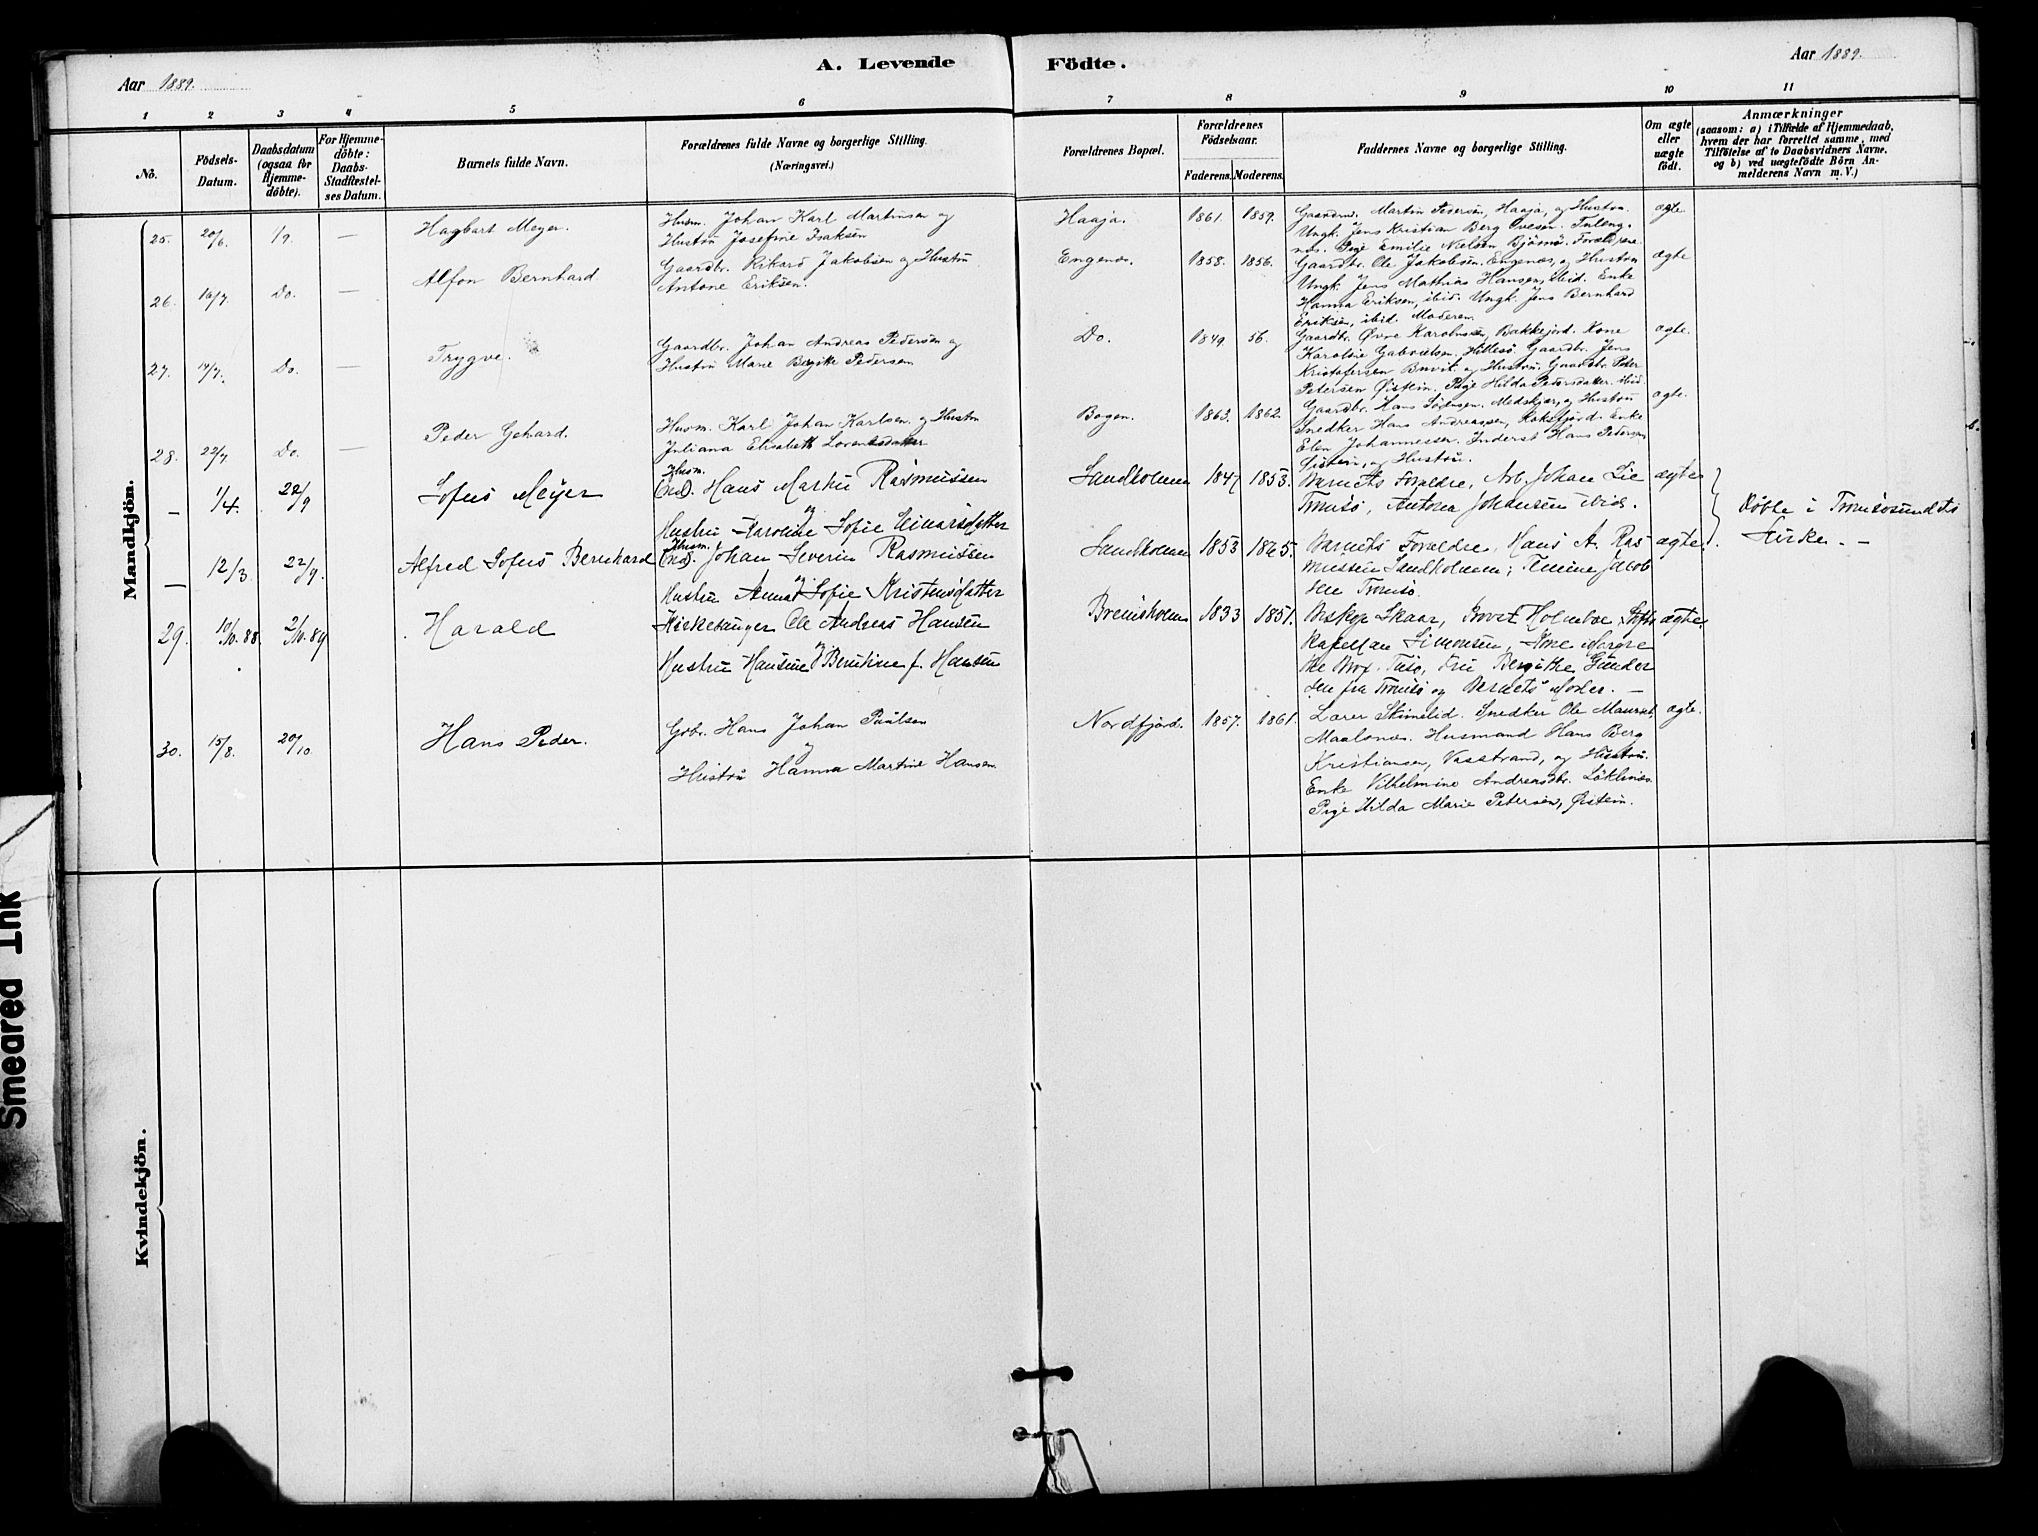 Aar 1889.
A. Levende Födte.
Aar 1889.
1 2 3 4 5 6 7 8 9 10 11
No.
Födsels-Datum.
Daabsdatum (ogsaa for Hjemme-döbte).
For Hjemme-döbte: Daabs-Stadfæstel-ses Datum.
Barnets fulde Navn.
Forældrenes fulde Navne og borgerlige Stilling.
(Næringsvei.)
Forældrenes Bopæl.
Forældrenes Födselsaar.
Faderens. Moderens.
Faddernes Navne og borgerlige Stilling.
Om ægte eller uægte födt.
Anmærkninger
(saasom: a) i Tilfælde af Hjemmedaab,
hvem der har forrettet samme, med
Tilföielse af to Daabsvidners Navne,
og b) ved uægtefödte Börn An-
melderens Navn m. V.)
Mandkjön.
25. 20/6. 1/9. — Hagbart Meyer. Husm. Johan Karl Martinsen og
Hustru Josefine Isaksen
Haaja. 1861. 1859. Gaardmd. Martin Pedersen, Haaja, og Hustru.
Ungk. Jens Kristian Berg Ovesen.
Pige Emilie Nielsen Bjömö. Forældrene.
ægte
26. 16/7. Do. — Alfon Bernhard Gaardbr. Rikard Jakobsen og Hustru
Antone Eriksen.
Engenes. 1858. 1856. Gaardbr. Ole Jakobsen. Engenes, og Hustru
Ungk. Jens Mathias Hansen, ibid. Enke
Hanna Eriksen, ibid. Ungk. Jens Bernhard
Eriksen, ibid. Moderen.
ægte
27. 17/7. Do. — Trygve. Gaardbr. Johan Andreas Pedersen og
Hustru Marie Bergitte Pedersen
Do. 1849 56. Gaardbr. Övne Karolussen, Bakkejord. Kone
Karoline Gabrielsen, Hillesö. Gaardbr. Jens
Kristofersen Buvik og Hustru. Gaardbr. Peter
Petersen Öistein. Pige Hilda Pedersdatter ibid.
ægte.
28. 22/7 Do. — Peder Gehard. Husm. Karl Johan Karlsen og Hustru
Juliana Elisabeth Lorentsdatter
Bogen. 1863. 1862. Gaardbr. Hans Sörensen. Medskjær, og Hustru
Snedker Hans Andreassen, Kaksfjord. Enke
Elen Johannessen. Inderst Hans Pedersen
Öistein, og Hustru.
ægte.
— 1/4. 22/9 Sofus Meyer Husm.
Hans Martin Rasmussen
og
Hustru Karoline Sofie Einarsdatter
Sandholmen 1847 1853. Barnets Forældre, Arb. Johan Lie
Tromsö, Antona Johansen ibid.
ægte
Döbte i Tromsösundets
Kirke. —
— 12/3. 22/9. Alfred Sofus Bernhard Husm.
Johan Severin Rasmussen
og
Hustru Anna Sofie Kristensdatter
Sandholmen 1853 1865. Barnets Forældre, Hans A. Ras
mussen Sandholmen; Jacob
sen Tromsö.
ægte.
29. 10/10. 88. 2/10. 89 Harald Kirkesanger Ole Andreas Hansen
og
Hustru Hansine Berntine f. Hansen
Brensholmen 1833 1851. Biskop Skaar, Provst Holmboe, Stifts
kapellan Simonsen, Margre
the Brox. Tusö, Fru Bergithe Gunder
sen fra Tromsö og Barnets Moder. —
ægte.
30. 15/8. 20/10 Hans Peder. Gbr. Hans Johan Paulsen
og
Hustru Hanna Martine Hansen.
Nordfjord. 1857. 1861. Lærer Skimelid. Snedker Ole Maurset,
Maalsnes. Husmand Hans Berg
Kristiansen, Vasstrand, og Hustru.
Enke Vilhelmine Andreasdtr. Löklines.
Pige Hilda Marie Petersen, Öistein.
ægte.
Kvindekjön.
Smeared Ink